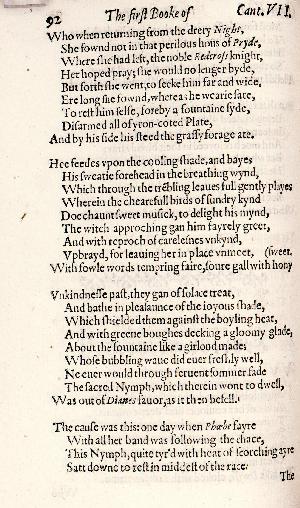 92 The first Booke of Cant. VII.
Who when returning from the drery Night,
She fownd not in that perilous hous of Pryde,
Where she had left, the noble Redcross knight,
Her hoped pray; she would no lenger byde,
But forth she went, to seeke him far and wide.
Ere long she fownd, whereas he wearie sate,
To rest him selfe, foreby a fountaine syde,
Disarmed all of yron-coted Plate,
And by his side his steed the grassy forage ate.
Hee feedes vpon the cooling shade, and bayes
His sweatie forehead in the breathing wynd,
Which through the trẽbling leaues full gently playes
Wherein the chearefull birds of sundry kynd
Doe chaunt sweet musick, to delight his mynd,
The witch approching gan him fayrely greet,
And with reproch of carelesnes vnkynd,
Vpbrayd, for leauing her in place vnmeet, (sweet.
With fowle words tempring faire, soure gall with hony
Vnkindnesse past, they gan of solace treat,
And bathe in pleasaunce of the ioyous shade,
Which shielded them against the boyling heat,
And with greene boughes decking a gloomy glade,
About the fountaine like a girlond made;
Whose bubbling waue did euer freshly well,
Ne euer would through feruent sommer fade
The sacred Nymph, which therein wont to dwell,
Was out of Dianes fauor, as it then befell.
The cause was this: one day when Phœbe fayre
With all her band was following the chace,
This Nymph, quite tyr'd with heat of scorching ayre
Satt downe to rest in middest of the race:
The